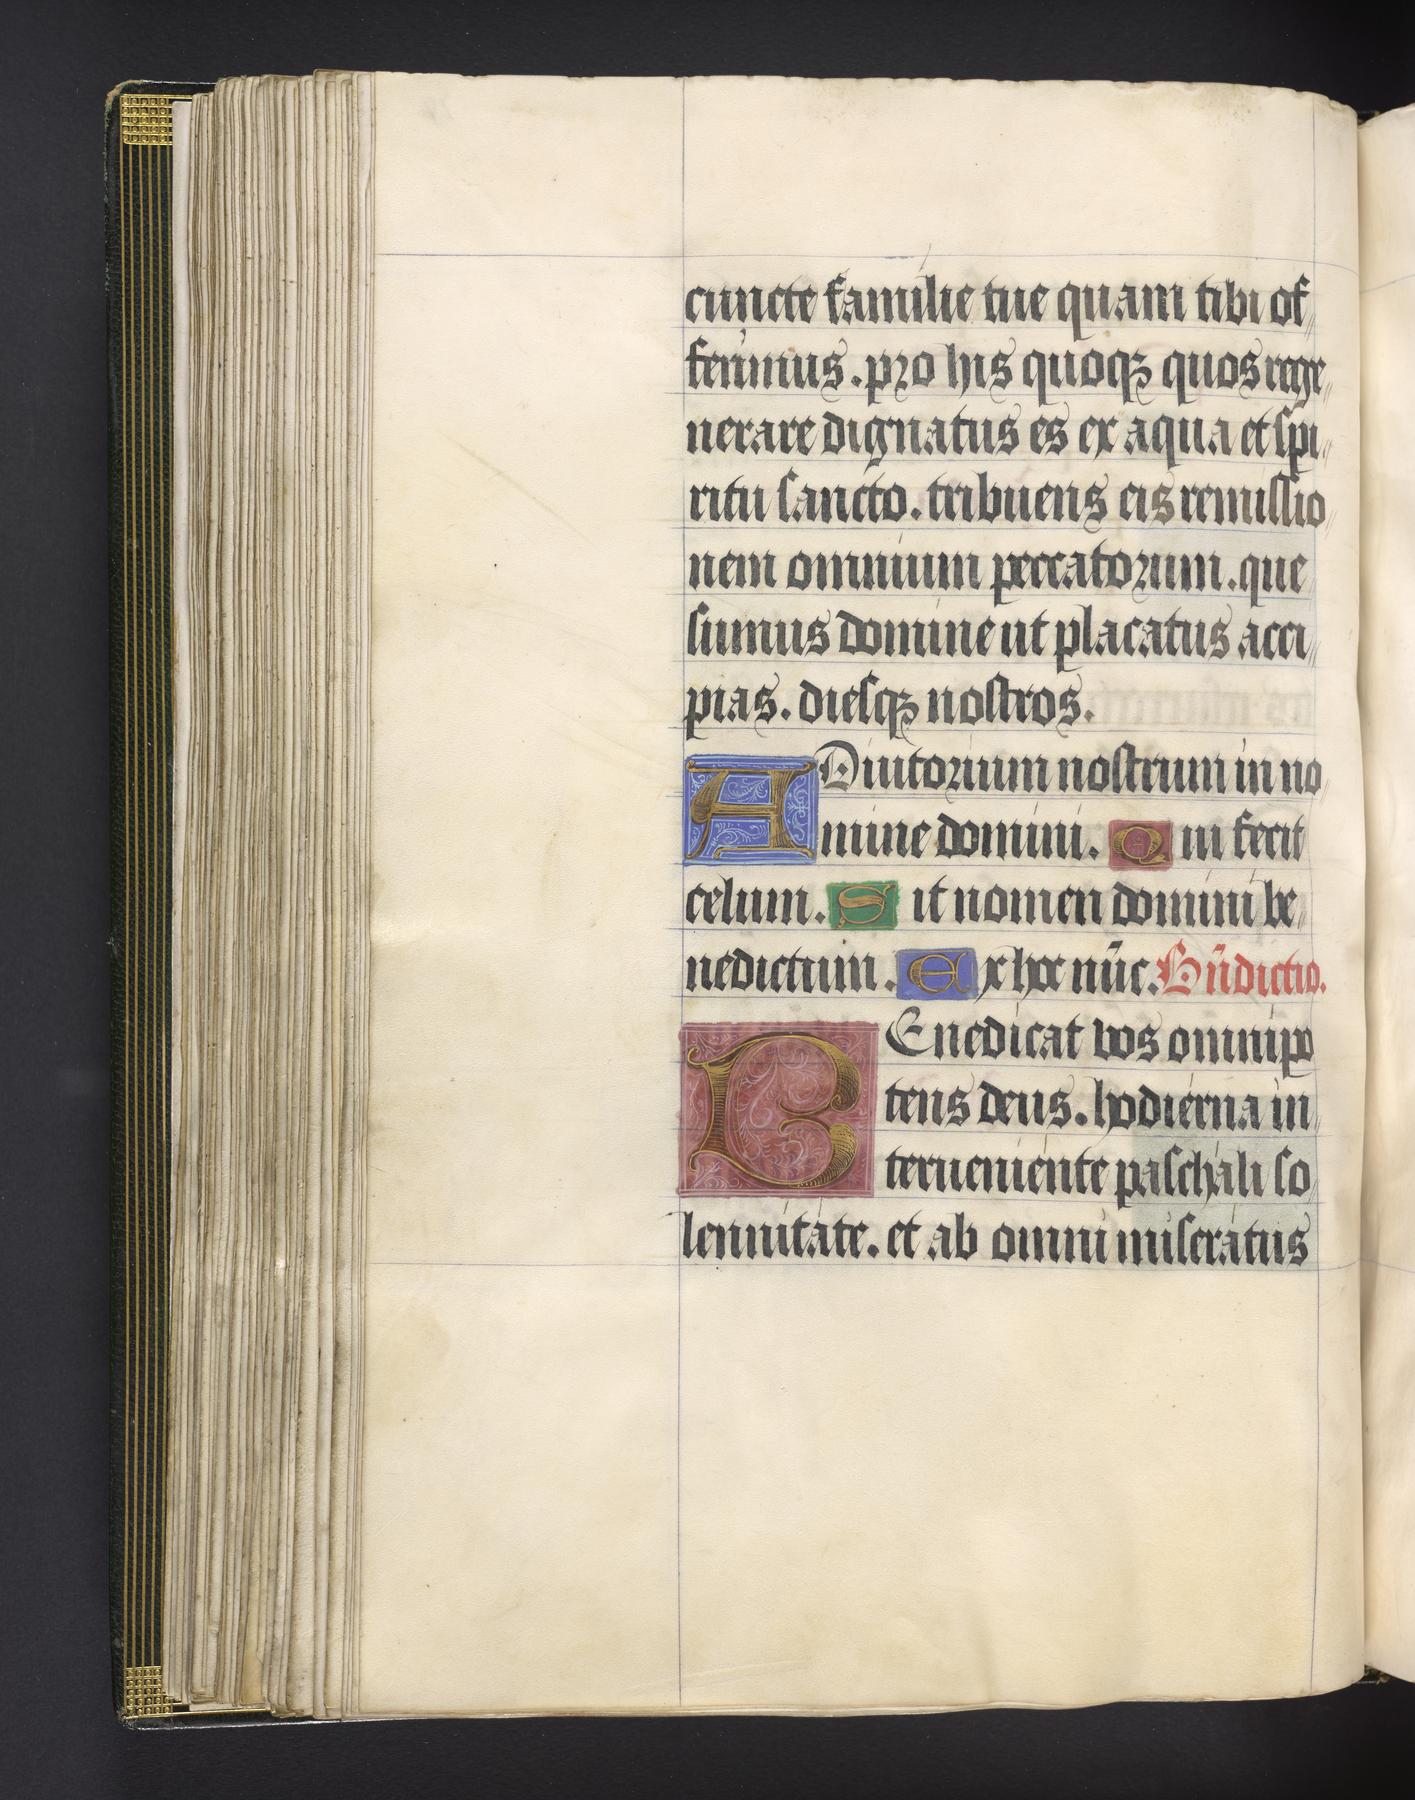 cuncte familie tue quam tibi of
ferimus. pro his quoqꝫ quos rege
nerare dignatus es ex aqua et spi
ritu sancto. tribuens eis remissio
nem omnium peccatorum. que
sumus domine ut placatus acci
pias. diesqꝫ nostros.
ADiutorium nostrum in no
mine domini. Qui fecit
celum. Sit nomen domini be
nedictum. Ex hoc nūc. Bn̄dictio.
BEnedicat vos omnipo
tens deus. hodierna in
terueniente paschali so
lennitate. et ab omni miseratus